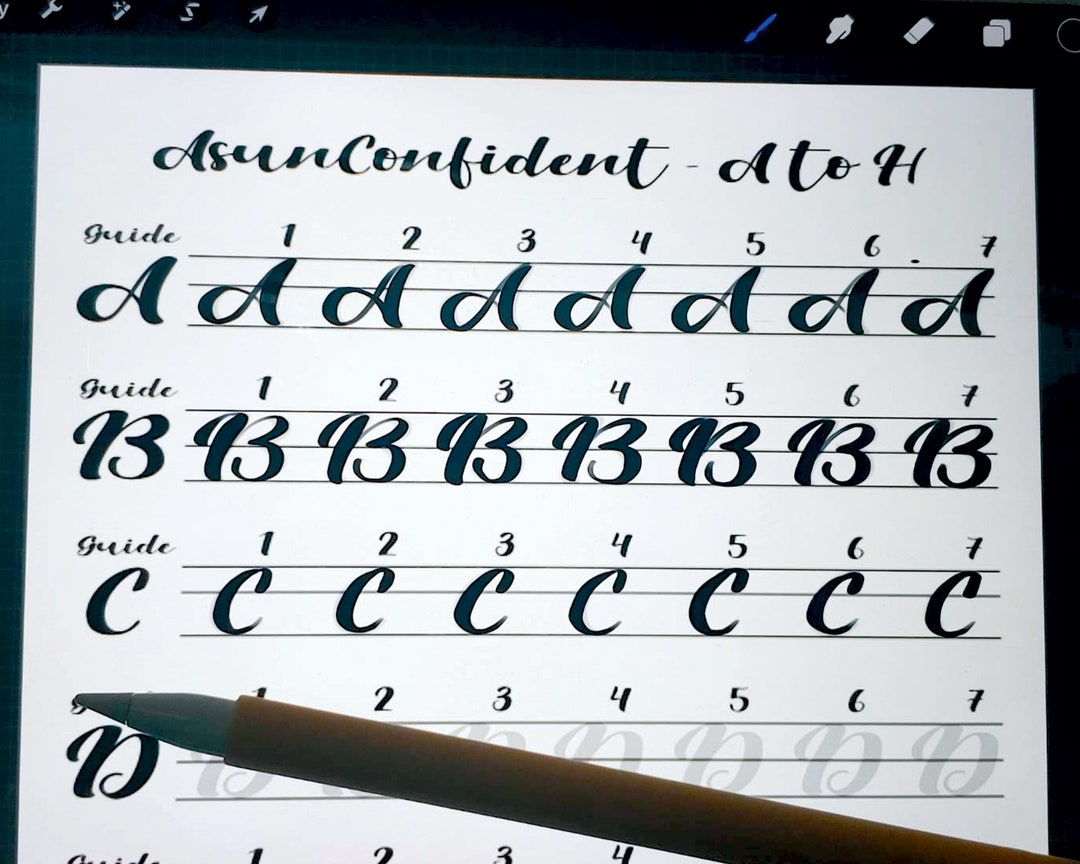 AsunConfident - A to H
Guide 1 2 3 4 5 6 7
A A A A A A A A
Guide 1 2 3 4 5 6 7
B B B B B B B B
Guide 1 2 3 4 5 6 7
C C C C C C C C
1 2 3 4 5 6 7
D D D D D D D
Guide 1 2 3 4